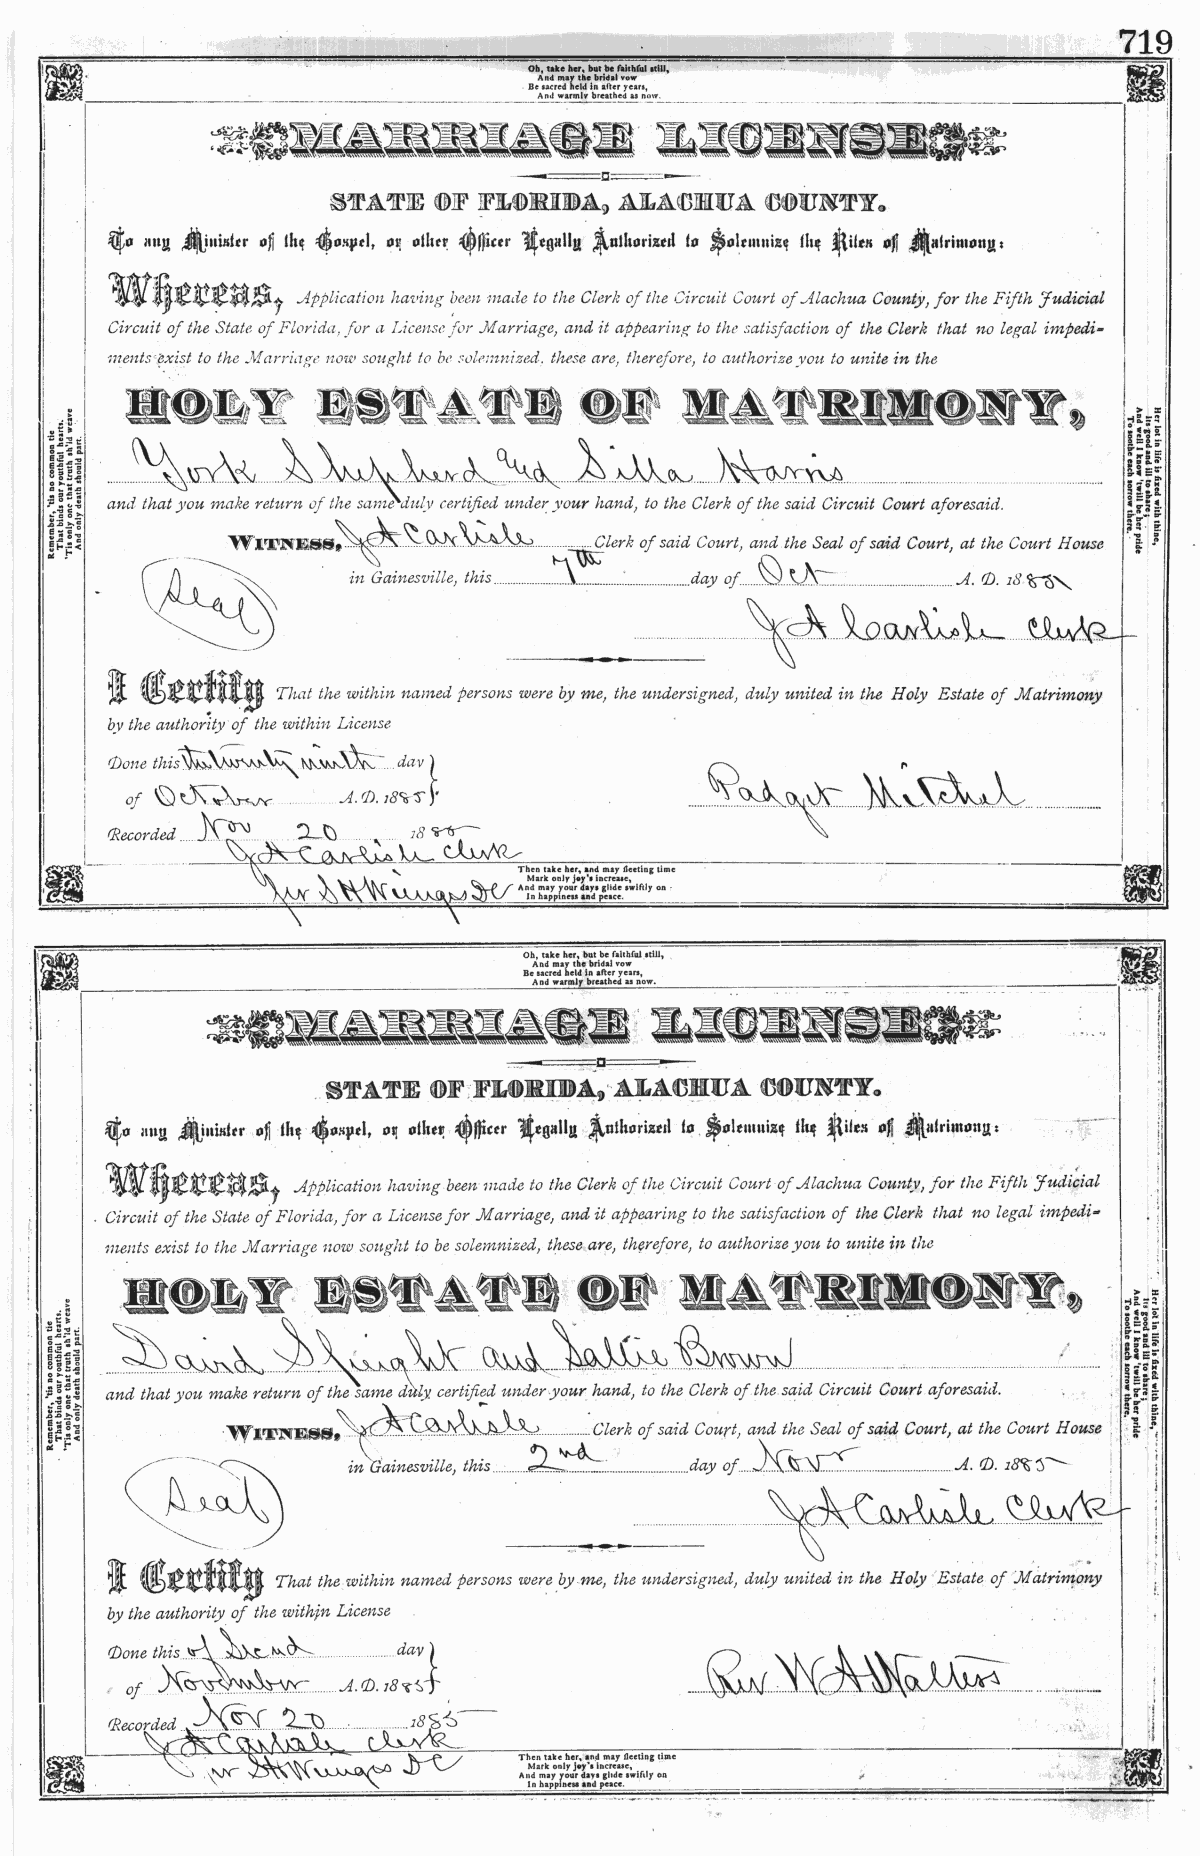 719
Oh, take her, but be faithful still,
And may the bridal vow
Be sacred held in after years,
And warmly breathed as now.
MARRIAGE LICENSE
STATE OF FLORIDA, ALACHUA COUNTY.
To any Minister of the Gospel, or other Officer Legally Authorized to Solemnize the Rites of Matrimony:
Whereas, Application having been made to the Clerk of the Circuit Court of Alachua County, for the Fifth Judicial
Circuit of the State of Florida, for a License for Marriage, and it appearing to the satisfaction of the Clerk that no legal impedi-
ments exist to the Marriage now sought to be solemnized, these are, therefore, to authorize you to unite in the
HOLY ESTATE OF MATRIMONY,
York Shepherd and Silla Harris
and that you make return of the same duly certified under your hand, to the Clerk of the said Circuit Court aforesaid.
WITNESS, J A Carlisle Clerk of said Court, and the Seal of said Court, at the Court House
in Gainesville, this 7th day of Oct A. D. 1885
Seal
J A Carlisle Clerk
I Certify That the within named persons were by me, the undersigned, duly united in the Holy Estate of Matrimony
by the authority of the within License
Done this the twenty ninth day
of October A. D. 1885
Padget Mitchel
Recorded Nov 20 1885
J A Carlisle Clerk
per S H Wienges DC
Then take her, and may fleeting time
Mark only joy's increase,
And may your days glide swiftly on
In happiness and peace.
Remember, 'tis no common tie
That binds our youthful hearts,
'Tis only one that truth sh'ld weave
And only death should part.
Her lot in life is fixed with thine,
Its good and ill to share;
And well I know 'twill be her pride
To soothe each sorrow there.
Oh, take her, but be faithful still,
And may the bridal vow
Be sacred held in after years,
And warmly breathed as now.
MARRIAGE LICENSE
STATE OF FLORIDA, ALACHUA COUNTY.
To any Minister of the Gospel, or other Officer Legally Authorized to Solemnize the Rites of Matrimony:
Whereas, Application having been made to the Clerk of the Circuit Court of Alachua County, for the Fifth Judicial
Circuit of the State of Florida, for a License for Marriage, and it appearing to the satisfaction of the Clerk that no legal impedi-
ments exist to the Marriage now sought to be solemnized, these are, therefore, to authorize you to unite in the
HOLY ESTATE OF MATRIMONY,
David Speight and Sallie Brown
and that you make return of the same duly certified under your hand, to the Clerk of the said Circuit Court aforesaid.
WITNESS, J A Carlisle Clerk of said Court, and the Seal of said Court, at the Court House
in Gainesville, this 2nd day of Novr A. D. 1885
Seal
J A Carlisle Clerk
I Certify That the within named persons were by me, the undersigned, duly united in the Holy Estate of Matrimony
by the authority of the within License
Done this of Secnd day
of November A. D. 1885
Rev W A Walters
Recorded Nov 20 1885
J A Carlisle Clerk
per S H Wienges DC
Then take her, and may fleeting time
Mark only joy's increase,
And may your days glide swiftly on
In happiness and peace.
Remember, 'tis no common tie
That binds our youthful hearts,
'Tis only one that truth sh'ld weave
And only death should part.
Her lot in life is fixed with thine,
Its good and ill to share;
And well I know 'twill be her pride
To soothe each sorrow there.